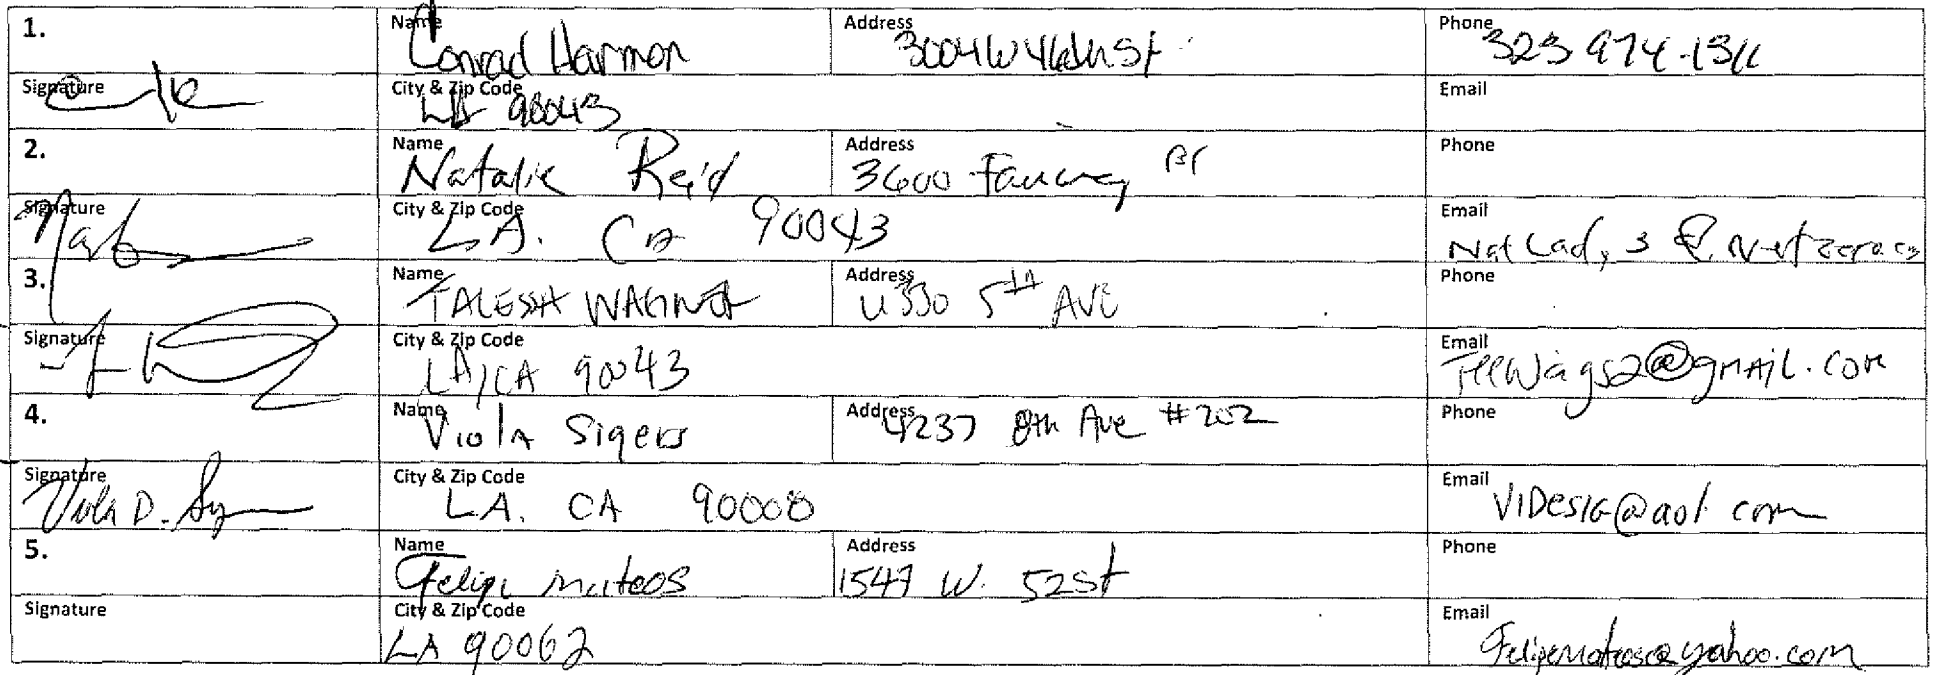 1. Name Conrad Harmon Address 3004 W 46th St Phone 323 974-1311
Signature City & Zip Code LA 90043 Email
2. Name Natalie Reid Address 3600 Phone
Signature City & Zip Code L.A. Ca 90043 Email
3. Name TALESSA WAGNER Address 5th AVE Phone
Signature City & Zip Code LA, CA 90043 Email TeeWags2@gmail.com
4. Name Viola Sigers Address 4237 8th Ave #202 Phone
Signature Viola D. City & Zip Code L.A. CA 90008 Email VIDesig@aol.com
5. Name Felipe mateos Address 1547 W. 52st Phone
Signature City & Zip Code LA 90062 Email Felipemateos@yahoo.com